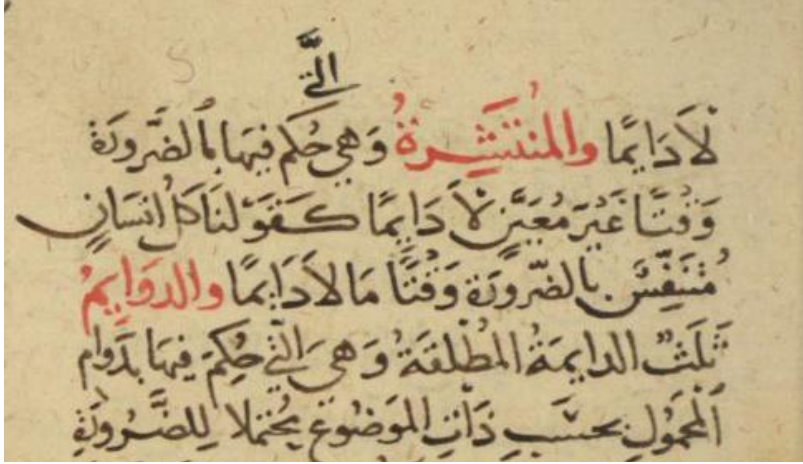 الَّتي
لَادَايمًا والمُنْتَشِرةُ وَهي حُكم فيهَا بالضَّرورَة
وَقْتًا غَيْرَ مُعَيَّنٍ لَا دَايمًا كَقَوْلنَا كُل انسَانٍ
مُتَنَفِّسٌ بالضّرورَة وَقْتًا مَا لاَ دَايمًا والدوَايمُ
ثَلَثٌ الدايمَةُ المُطْلقَةُ وَهيَ الَّتي حُكِمَ فيهَا بدَوام
المَحْمُول بحَسَبِ ذَاتِ المَوضُوع مُحْتملا لِلضَّرُورَةِ